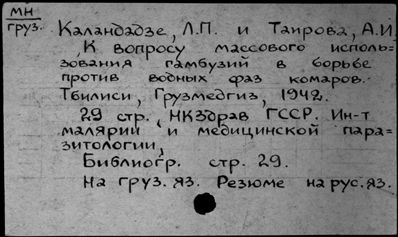 мн
груз.
Каландадзе, Л.П. и Таирова, А.И.
К вопросу массового исполь=
зования гамбузий в борьбе
против водных фаз комаров.
Тбилиси, Грузмедгиз, 1942.
29 стр., НКЗдрав ГССР. Ин-т
малярии и медицинской пара=
зитологии,
Библиогр. стр. 29.
На груз. яз. Резюме на рус. яз.